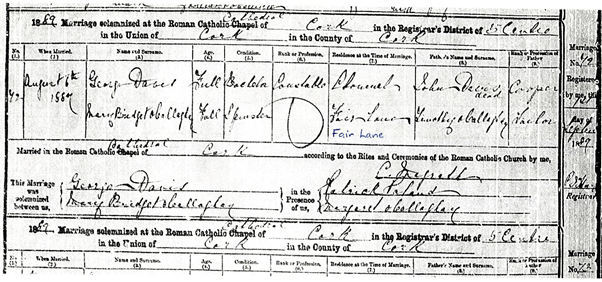 1889 Marriage solemnized at the Roman Catholic Chapel of Cork in the Registrar's District of 5 Centre
Cathedral
in the Union of Cork in the County of Cork
No. When Married. Name and Surname. Age. Condition. Rank or Profession. Residence at the Time of Marriage. Father's Name and Surname. Rank or Profession of Father
(1.) (2.) (3.) (4.) (5.) (6.) (7.) (8.)
72 August 1889 George Davis Full Bachelor Constable John Davis dead Cooper
Mary Bridget O'Callaghan Full Spinster Fair Lane Timothy O'Callaghan Tailor
Fair Lane
Cathedral
Married in the Roman Catholic Chapel of Cork according to the Rites and Ceremonies of the Roman Catholic Church by me,
This Marriage was solemnized between us, George Davis in the Presence of us, Patrick
Mary Bridget O'Callaghan Margaret O'Callaghan
1889 Marriage solemnized at the Roman Catholic Chapel of Cork in the Registrar's District of 5 Centre
Cathedral
in the Union of Cork in the County of Cork
No. When Married. Name and Surname. Age. Condition. Rank or Profession. Residence at the Time of Marriage. Father's Name and Surname. Rank or Profession of Father
Marriage
No. 72
Registered
by me, this
Day of
1889
Registrar
Marriage